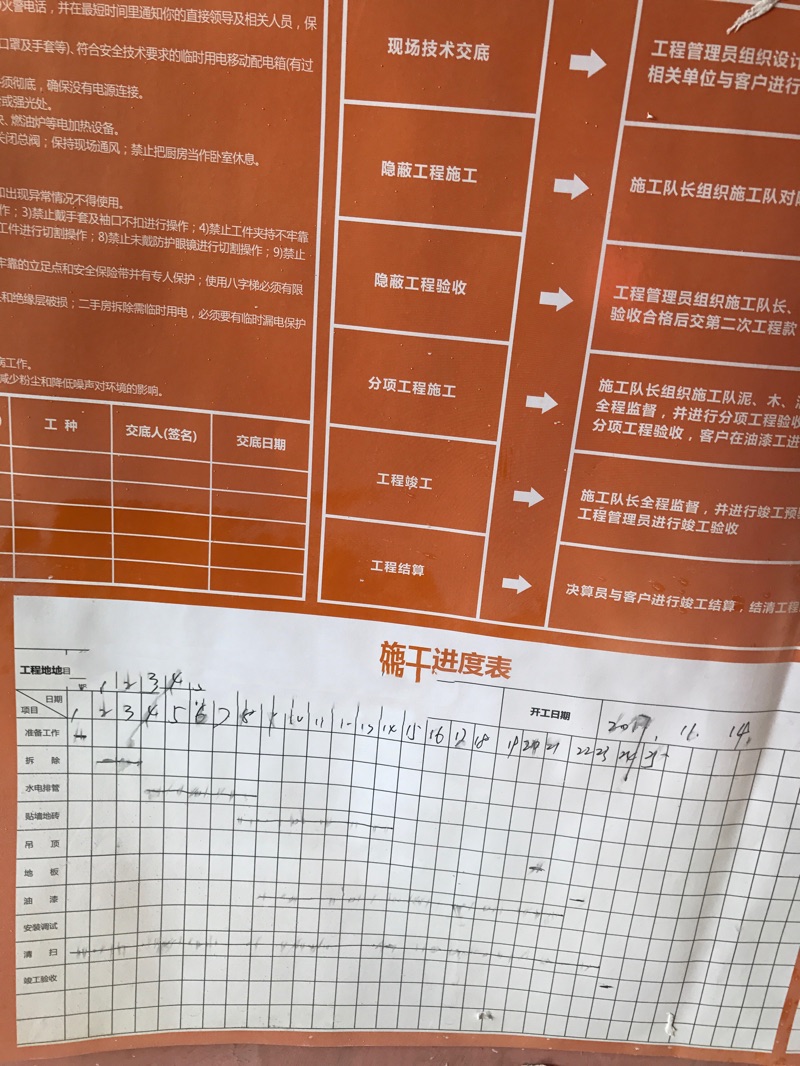 火警电话，并在最短时间里通知你的直接领导及相关人员，保
口罩及手套等)、符合安全技术要求的临时用电移动配电箱(有过
须彻底，确保没有电源连接。
或强光处。
燃油炉等电加热设备。
关闭总阀；保持现场通风；禁止把厨房当作卧室休息。
如出现异常情况不得使用。
作；3)禁止戴手套及袖口不扣进行操作；4)禁止工件夹持不牢靠
工件进行切割操作；8)禁止未戴防护眼镜进行切割操作；9)禁止
牢靠的立足点和安全保险带并有专人保护；使用八字梯必须有限
和绝缘层破损；二手房拆除需临时用电，必须要有临时漏电保护
工作。
减少粉尘和降低噪声对环境的影响。
工 种 交底人(签名) 交底日期
现场技术交底
工程管理员组织设计
相关单位与客户进行
隐蔽工程施工
施工队长组织施工队对
隐蔽工程验收
工程管理员组织施工队长、
验收合格后交第二次工程款
分项工程施工
施工队长组织施工队泥、木、
全程监督，并进行分项工程验收
分项工程验收，客户在油漆工进
工程竣工
施工队长全程监督，并进行竣工预验
工程管理员进行竣工验收
工程结算
决算员与客户进行竣工结算，结清工程
进度表
工程地址
1 2 3 4 5
日期
项目
开工日期
2017. 11. 14.
1 2 3 4 5 6 7 8 9 10 11 12 13 14 15 16 17 18 19 20 21 22 23 24 25
准备工作
拆 除
水电排管
贴墙地砖
吊 顶
地 板
油 漆
安装调试
清 扫
竣工验收